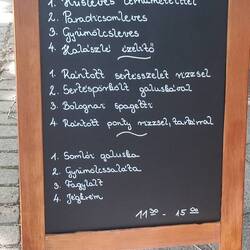 1. Húsleves cérnametélttel
2. Paradicsomleves
3. Gyümölcsleves
4. Halászlé ízelítő
1. Rántott sertésszelet rizzsel
2. Sertéspörkölt galuskával
3. Bolognai spagetti
4. Rántott ponty rizzsel, tartárral
1. Somlói galuska
2. Gyümölcssaláta
3. Fagylalt
4. Jégkrém
11 30 - 15 00